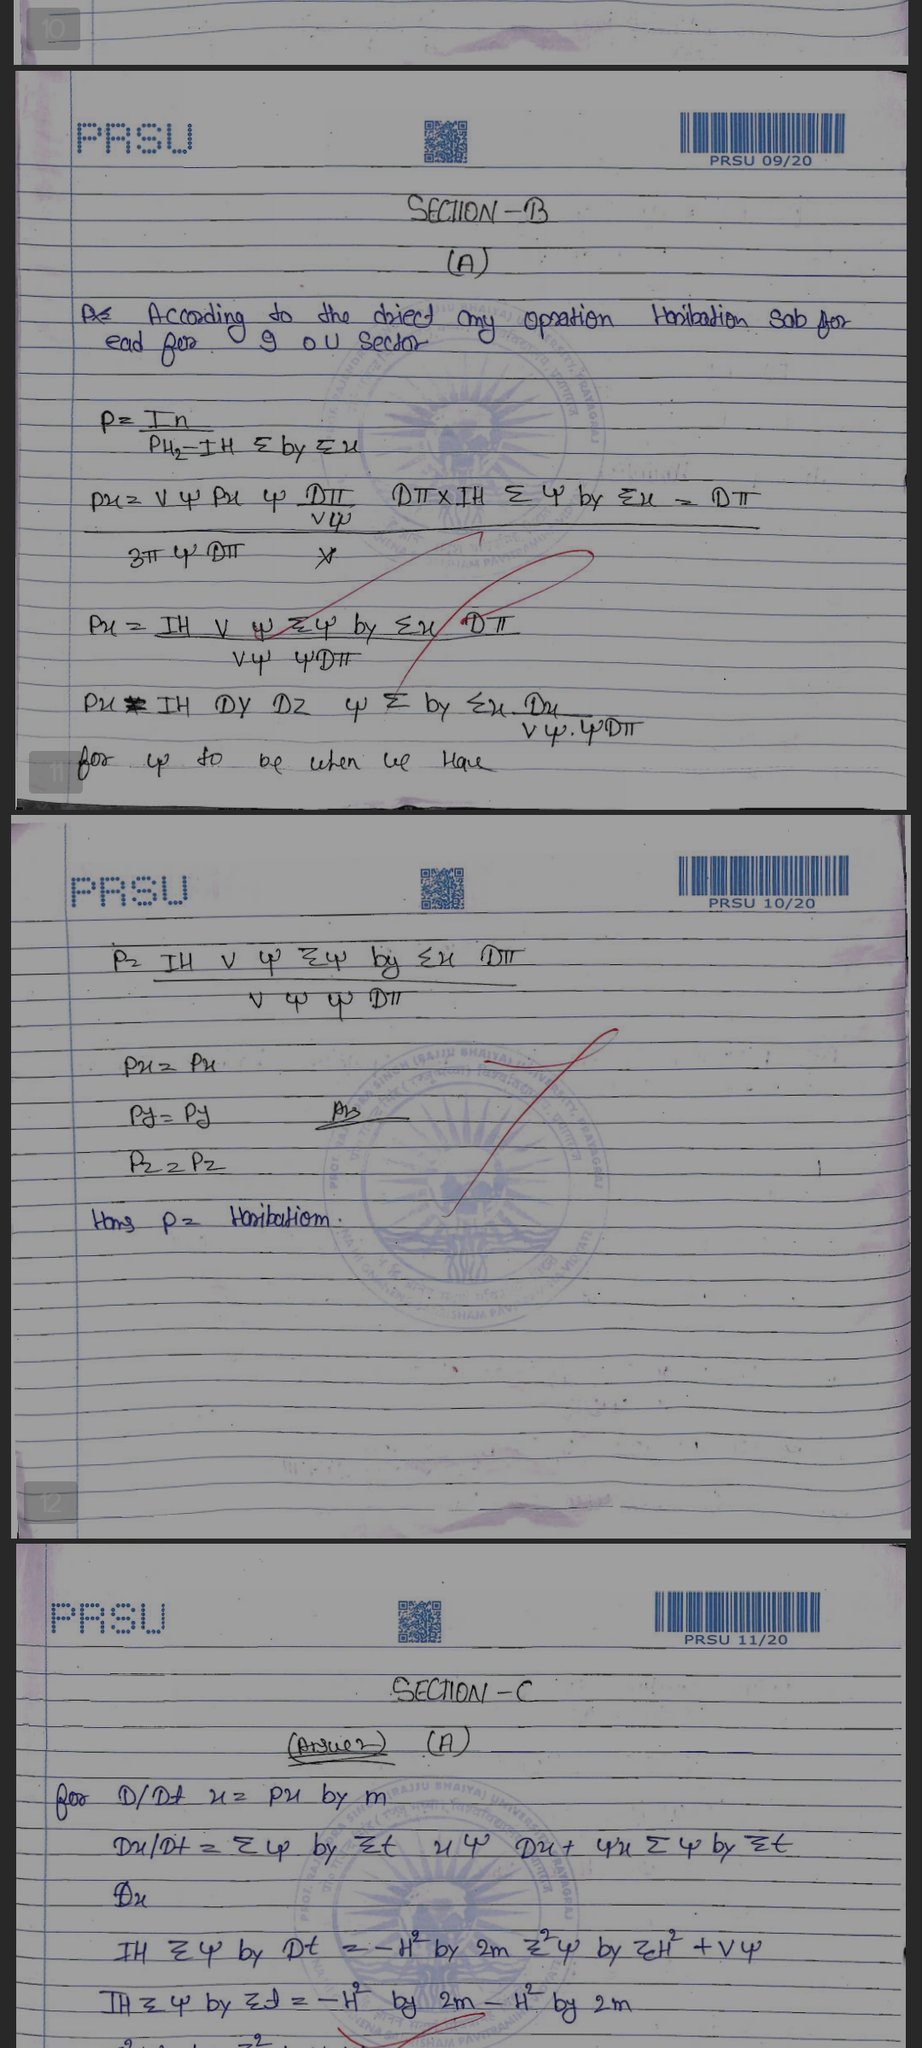 10
PRSU
PRSU 09/20
SECTION - B
(A)
According to the driect my opration Haribation Sab for
ead for 9 OU Sector
P = In
PH₂-IH Σ by Σx
Px = V ψ Px ψ Dπ/Vψ Dπ x IH Σ ψ by Σx = Dπ
3π ψ Dπ
Px = IH V ψ Σψ by Σx Dπ
Vψ ψDπ
Px IH DY DZ ψ Σ by Σx Dx
Vψ.ψDπ
for ψ to be when we Have
11
PRSU
PRSU 10/20
P= IH V ψ Σψ by Σx Dπ
V ψ ψ Dπ
Px = Px
Py = Py Ans
Pz = Pz
Hans P = Haribatiom.
12
PRSU
PRSU 11/20
SECTION - C
(Answer) (A)
for D/Dt x = px by m
Dx/Dt = Σ ψ by Σt x ψ Dx + ψx Σ ψ by Σt
Dx
IH Σ ψ by Dt = -H² by 2m Σ²ψ by ΣH² + Vψ
IH Σ ψ by Σt = -H² by 2m - H² by 2m